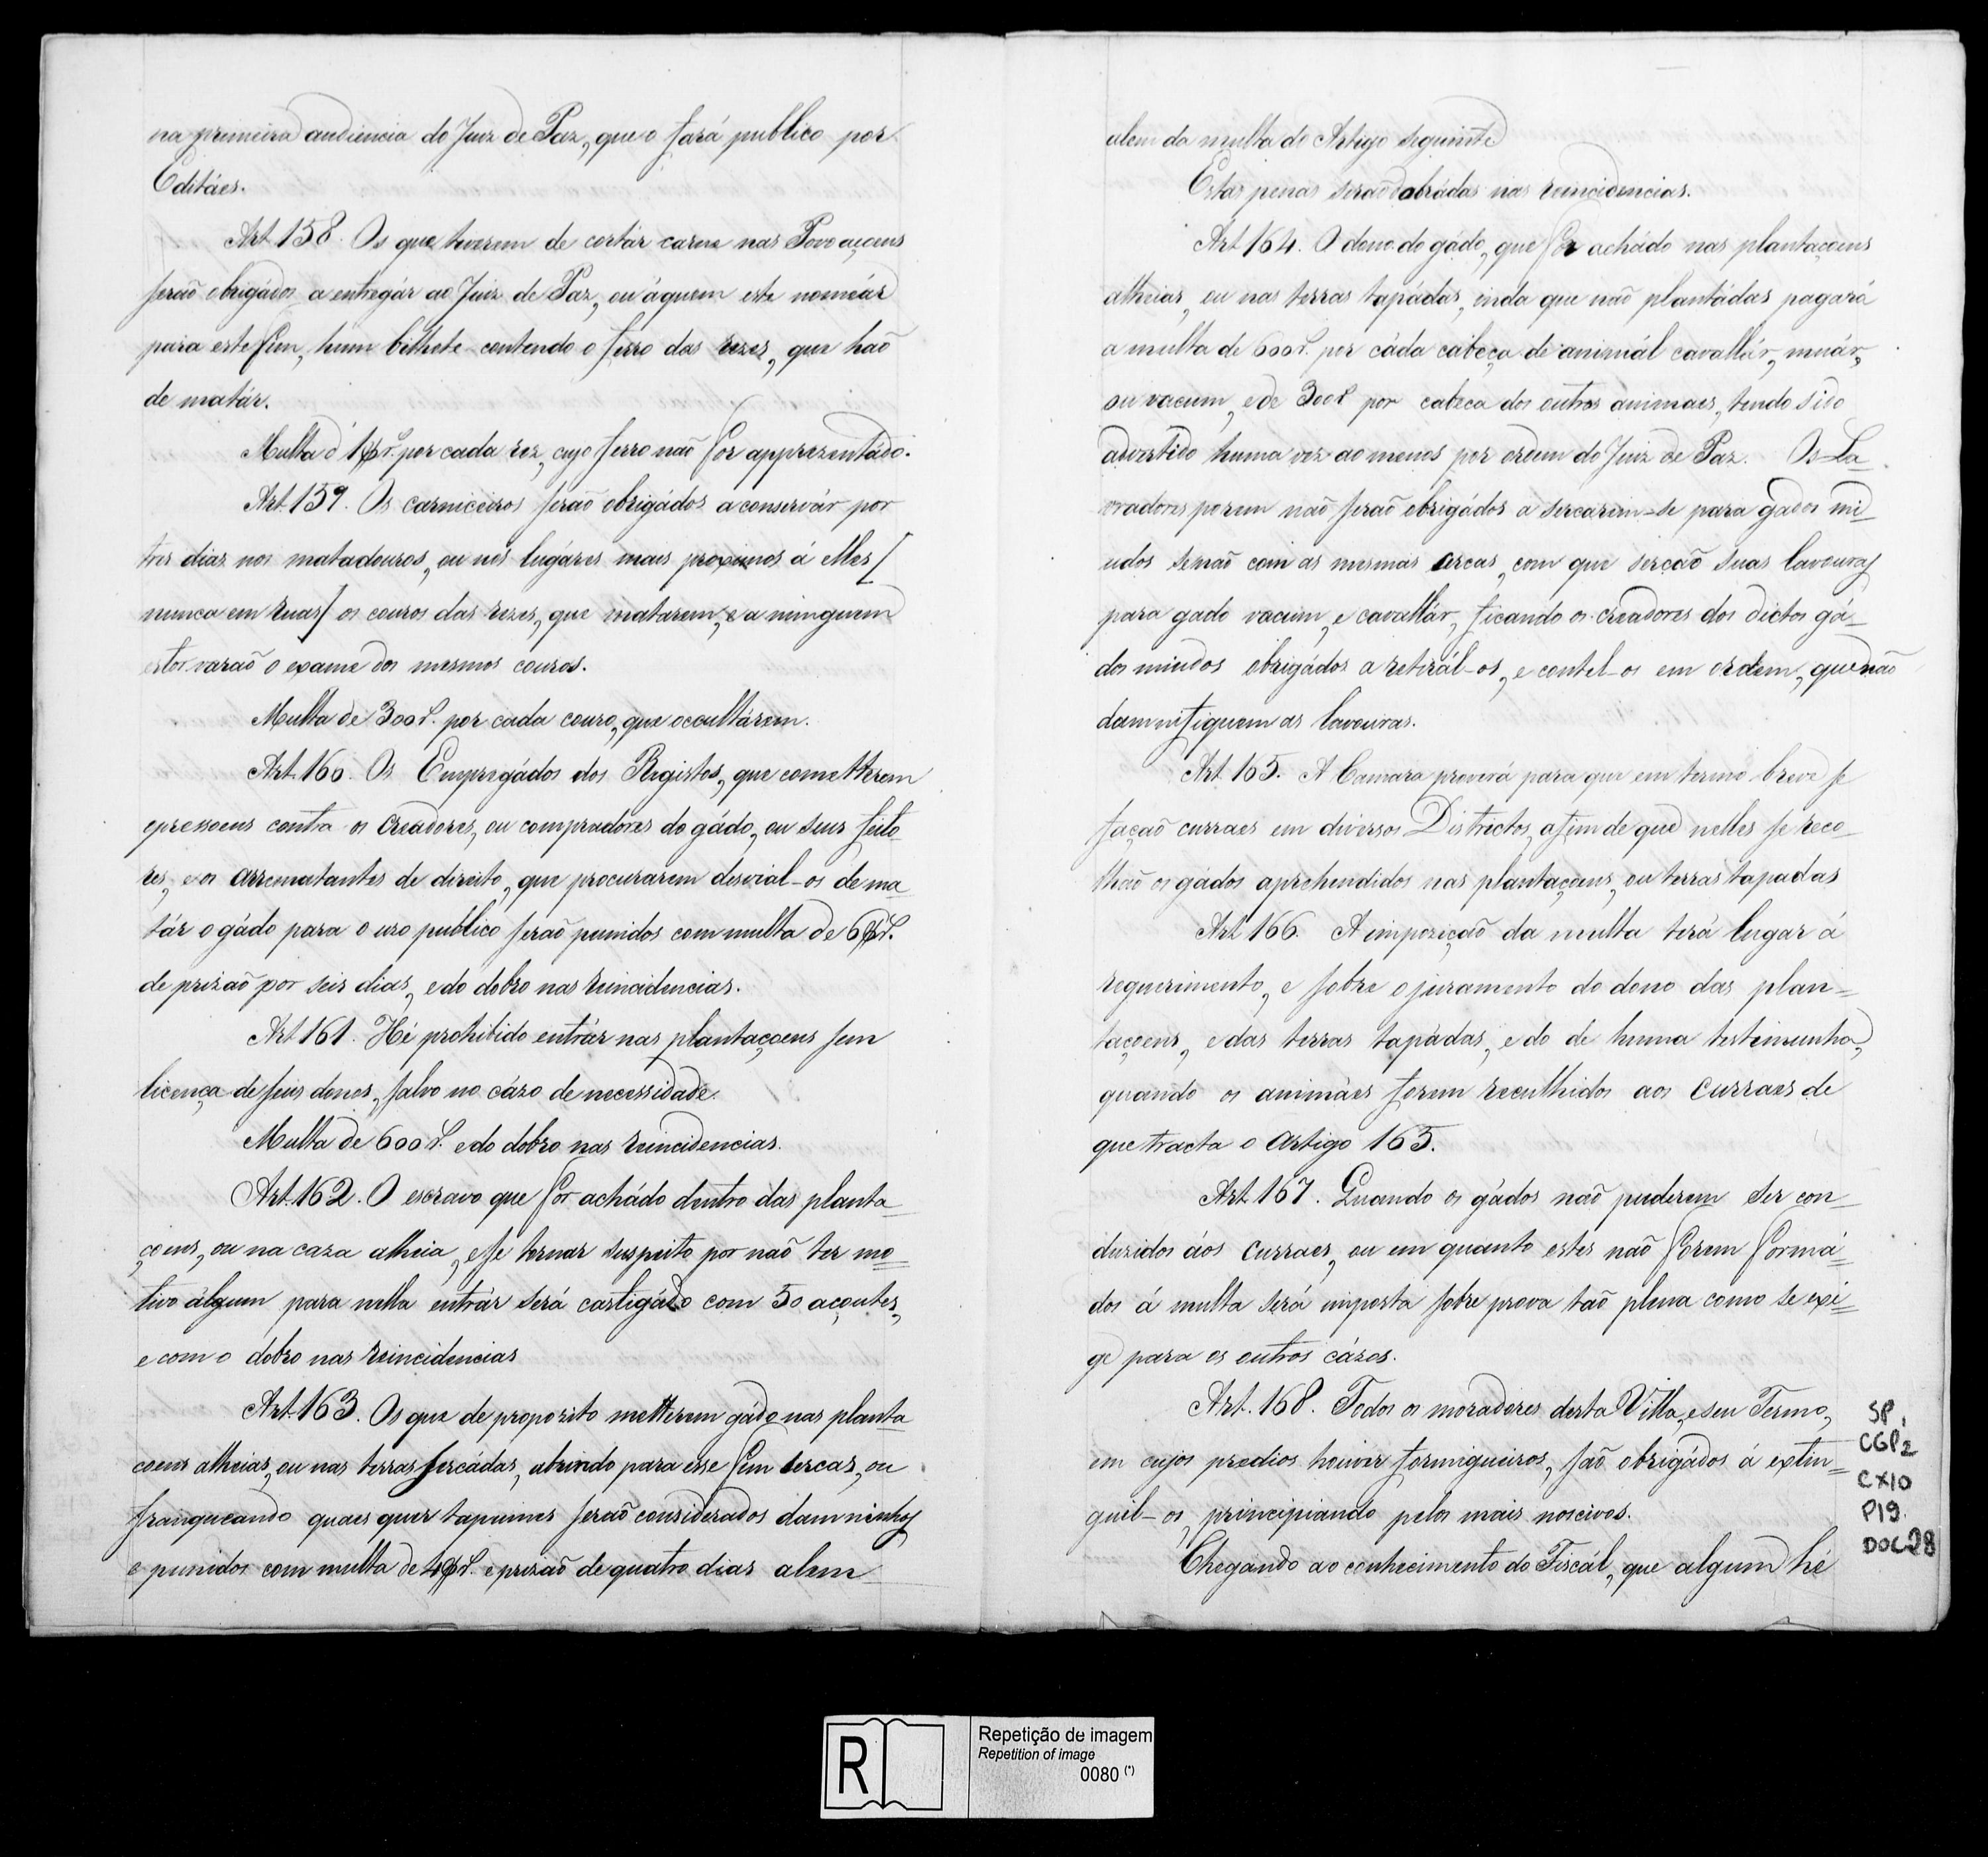 na primeira audiencia do Juiz de Paz, que o fará publico por
Editáes.
Art. 158. Os que tiverem de cortár carne nas Povoaçoens
serão obrigádos a entregár ao Juiz de Paz, ou áquem este nomeár
para este fim, hum bilhete contendo o ferro das rezes, que haõ
de matár.
Multa d' 1$r.s por cada rez, cujo ferro naõ for apprezentádo.
Art. 159. Os carniceiros seraõ obrigádos a conservár por
tres dias nos matadouros, ou nos lugáres mais proximos á elles [
nunca em ruas] os couros das rezes, que matarem, e a ninguem
estorvaraõ o exame dos mesmos couros.
Multa de 300 r.s por cada couro, que occultárem.
Art. 160. Os Empregádos dos Registos, que cometterem
opressoens contra os Creadores, ou compradores do gádo, ou seus feito
res, e os arrematantes de direito, que procurarem desvial-os de ma
tár o gádo para o uzo publico seraõ punidos com multa de 6$r.s
de prizaõ por seis dias, e do dobro nas reincidencias.
Art. 161. Hé prohibido entrár nas plantaçoens sem
licença de seus donos, salvo no cázo de necessidade.
Multa de 600 r.s e do dobro nas reincidencias.
Art. 162. O escravo que for achádo dentro das planta
çoens, ou na caza alheia, e se tornar suspeito por naõ ter mo=
tivo algum para nella entrár será castigádo com 50 açoutes,
e com o dobro nas reincidencias
Art. 163. Os que de proposito metterem gádo nas planta
coens alheias, ou nas terras sercádas, abrindo para esse fim sercas, ou
franqueando quaes quer tapumes seraõ considerados damninhos
e punidos com multa de 4$r.s e prizaõ de quatro dias alem
alem da multa do Artigo seguinte
Estas penas seraõ dobrádas nas reincidencias.
Art. 164. O dono do gádo, que for achádo nas plantaçoens
alheias, ou nas terras tapádas, inda que naõ plantádas pagará
a multa de 600 r.s por cáda cabeça de animál cavallár, muár,
ou vacum, e de 300 r.s por cabeca dos outros animaes, tendo sido
advertido huma vez ao menos por ordem do Juiz de Paz. Os La
vradores porem naõ seraõ obrigádos a sercarem-se para gados mi
udos senaõ com as mesmas cercas, com que sercaõ suas lavouras
para gado vacum, e cavallár, ficando os creadores dos dictos gá
dos miudos obrigádos a retirál-os, e contel-os em ordem, que naõ
damnifiquem as lavouras.
Art. 165. A Camara proverá para que em termo breve se
façaõ curraes em diversos Districtos, afim de que nelles se reco
lhaõ os gádos aprehendidos nas plantaçoens, ou terras tapadas
Art. 166. A impoziçaõ da multa terá lugar á
requerimento, e sobre o juramento do dono das plan=
taçoens, e das terras tapádas, e do de huma testimunha,
quando os animáes forem recolhidos aos curraes de
que tracta o artigo 165.
Art. 167. Quando os gádos naõ puderem ser con
duzidos áos curraes, ou em quanto estes naõ forem formá=
dos á multa será imposta sobre prova taõ plena como se exi=
ge para os outros cázos.
Art. 168. Todos os moradores desta Villa, e seu Termo,
em cujos predios houver formigueiros, saõ obrigádos á extin=
guil-os, principiando pelos mais noscivos.
Chegando ao conhecimento do Fiscál, que algum hé
SP 1
CGP2
CX10
P19.
DOC28
R
Repetição de imagem
Repetition of image
0080 (*)